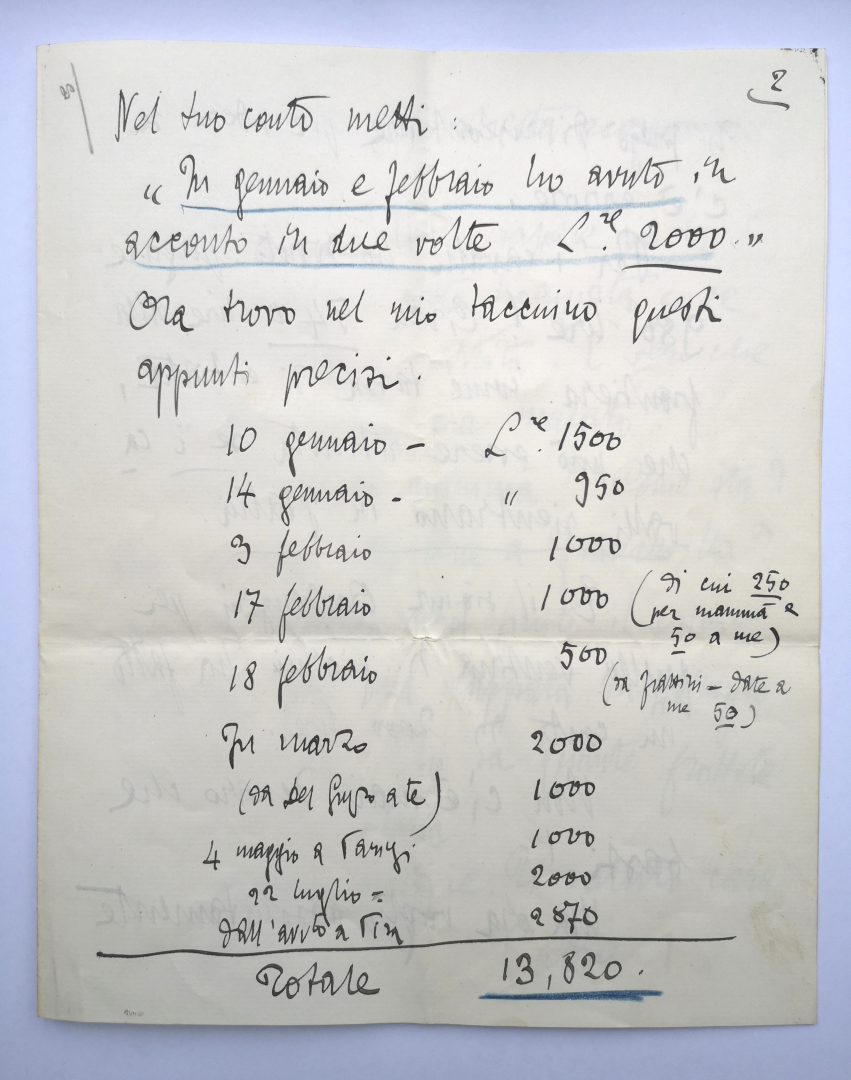 2
Nel tuo conto metti :
" In gennaio e febbraio ho avuto in
acconto in due volte L.re 2000. "
Ora trovo nel mio taccuino questi
appunti precisi :
10 gennaio - L.re 1500
14 gennaio - " 950
3 febbraio 1000
17 febbraio 1000 (di cui 250
per mamma e
50 a me)
18 febbraio 500
(da Frassini - date a
me 50)
In marzo 2000
(da Del Guzzo a te) 1000
4 maggio a Parigi 1000
22 luglio = 2000
dall'avuto a 2870
Totale 13,820.